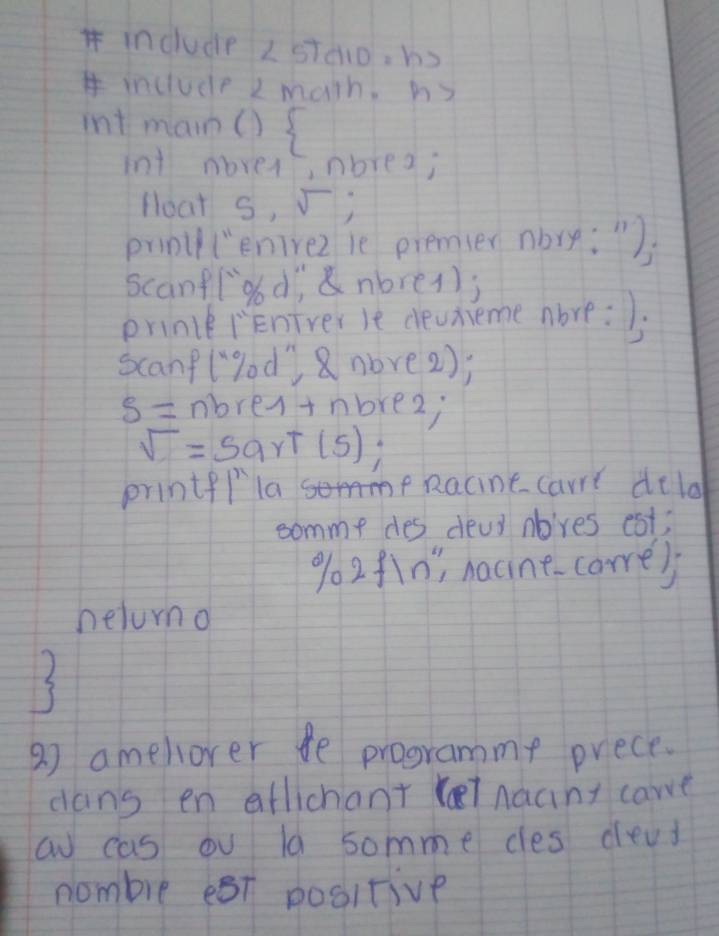 # include < stdio.h>
# include < math. h>
int main () {
int nbre1, nbre2;
float s, √ ;
printf ("entrez le premier nbre : ");
scanf ("%d", & nbre1);
printf ("Entrer le deuxieme nbre : );
scanf ("%d", & nbre 2);
s = nbre1 + nbre2;
√ = sqrt (s);
printf (" la somme Racine_carré de la
somme des deux nbres est:
%2f\n", racine_carré);
return 0
}
2) ameliorer le programme prece-
dans en affichant cet racine carre
au cas ou la somme des deux
nombre est positive